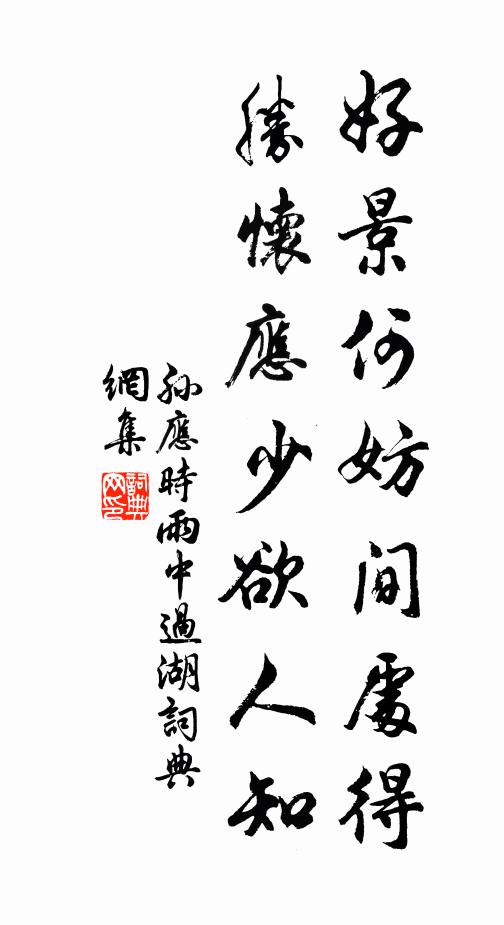 好景何妨间處得
勝懷應少欲人知
孫應時雨中過湖詞典
網集
詞典
网印